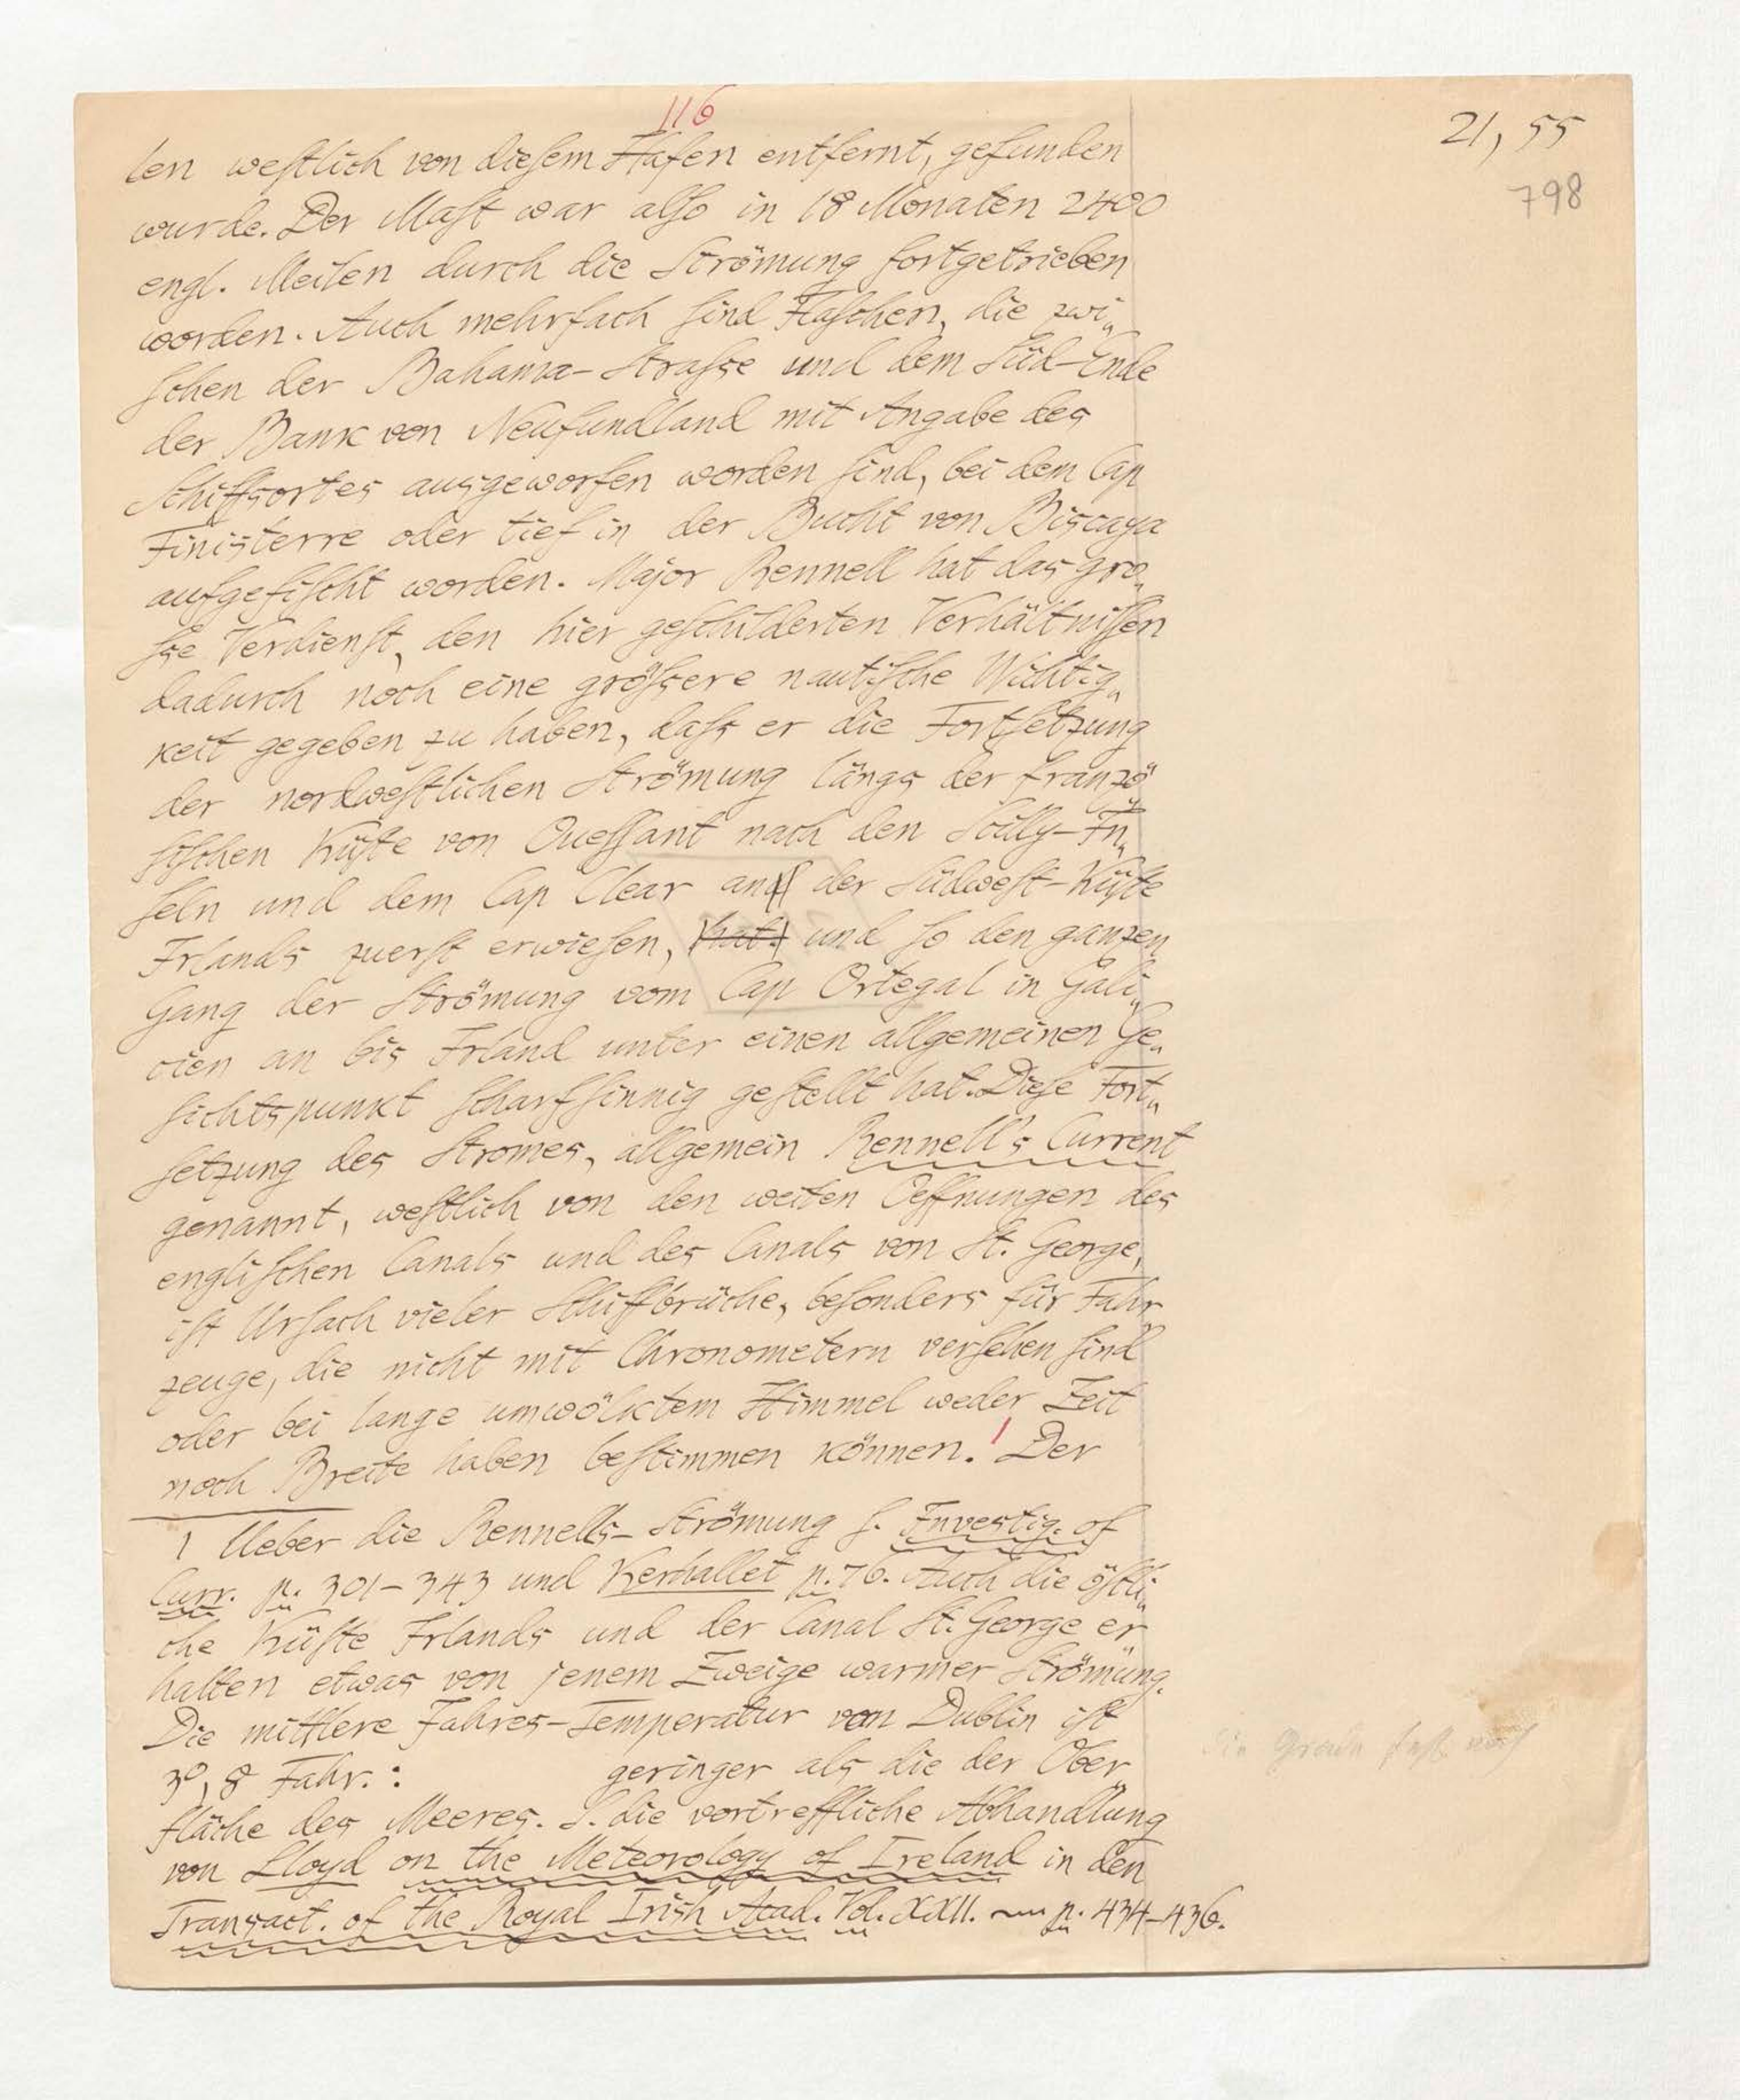 116
21, 55
798
len weſtlich von dieſem Hafen entfernt, gefunden
wurde. Der Maſt war alſo in 18 Monaten 2400
engl. Meilen durch die Strömung fortgetrieben
worden. Auch mehrfach ſind Flaſchen, die zwi„
ſchen der Bahama-Straſse und dem Süd-Ende
der Bank von Neufundland mit Angabe des
Schiffsortes ausgeworfen worden ſind, bei dem Cap
Finisterre oder tief in der Bucht von Biscaya
aufgefiſcht worden. Major Rennell hat das gro„
ſse Verdienſt, den hier geſchilderten Verhältniſſen
dadurch noch eine gröſsere nautiſche Wichtig„
keit gegeben zu haben, daſs er die Fortſetzung
der nordweſtlichen Strömung längs der franzö„
ſiſchen Küſte von Oueſſant nach den Scilly-In„
ſeln und dem Cap Clear an der Südweſt-Küſte
Irlands zuerſt erwieſen, hat. und ſo den ganzen
Gang der Strömung vom Cap Ortegal in Gali„
cien an bis Irland unter einen allgemeinen Ge„
ſichtspunkt ſcharfſinnig geſtellt hat. Dieſe Fort„
ſetzung des Stromes, allgemein Rennell's Current
genannt, weſtlich von den weiten Oeffnungen des
engliſchen Canals und des Canals von St. George,
iſt Urſach vieler Schiffbrüche, beſonders für Fahr„
zeuge, die nicht mit Chronometern verſehen ſind
oder bei lange umwölktem Himmel weder Zeit
noch Breite haben beſtimmen können.1 Der
1 Ueber die Rennells-Strömung ſ. Investig. of
Curr. p. 301-343 und Kerhallet p. 76. Auch die öſtli„
che Küſte Irlands und der Canal St. George er„
halten etwas von jenem Zweige warmer Strömung.
Die mittlere Jahres-Temperatur von Dublin iſt
3°,8 Fahr.: geringer als die der Ober„
fläche des Meeres. S. die vortreffliche Abhandlung
von Lloyd on the Meteorology of Ireland in den
Transact. of the Royal Irish Acad. Vol. XXII. p. 434-436.